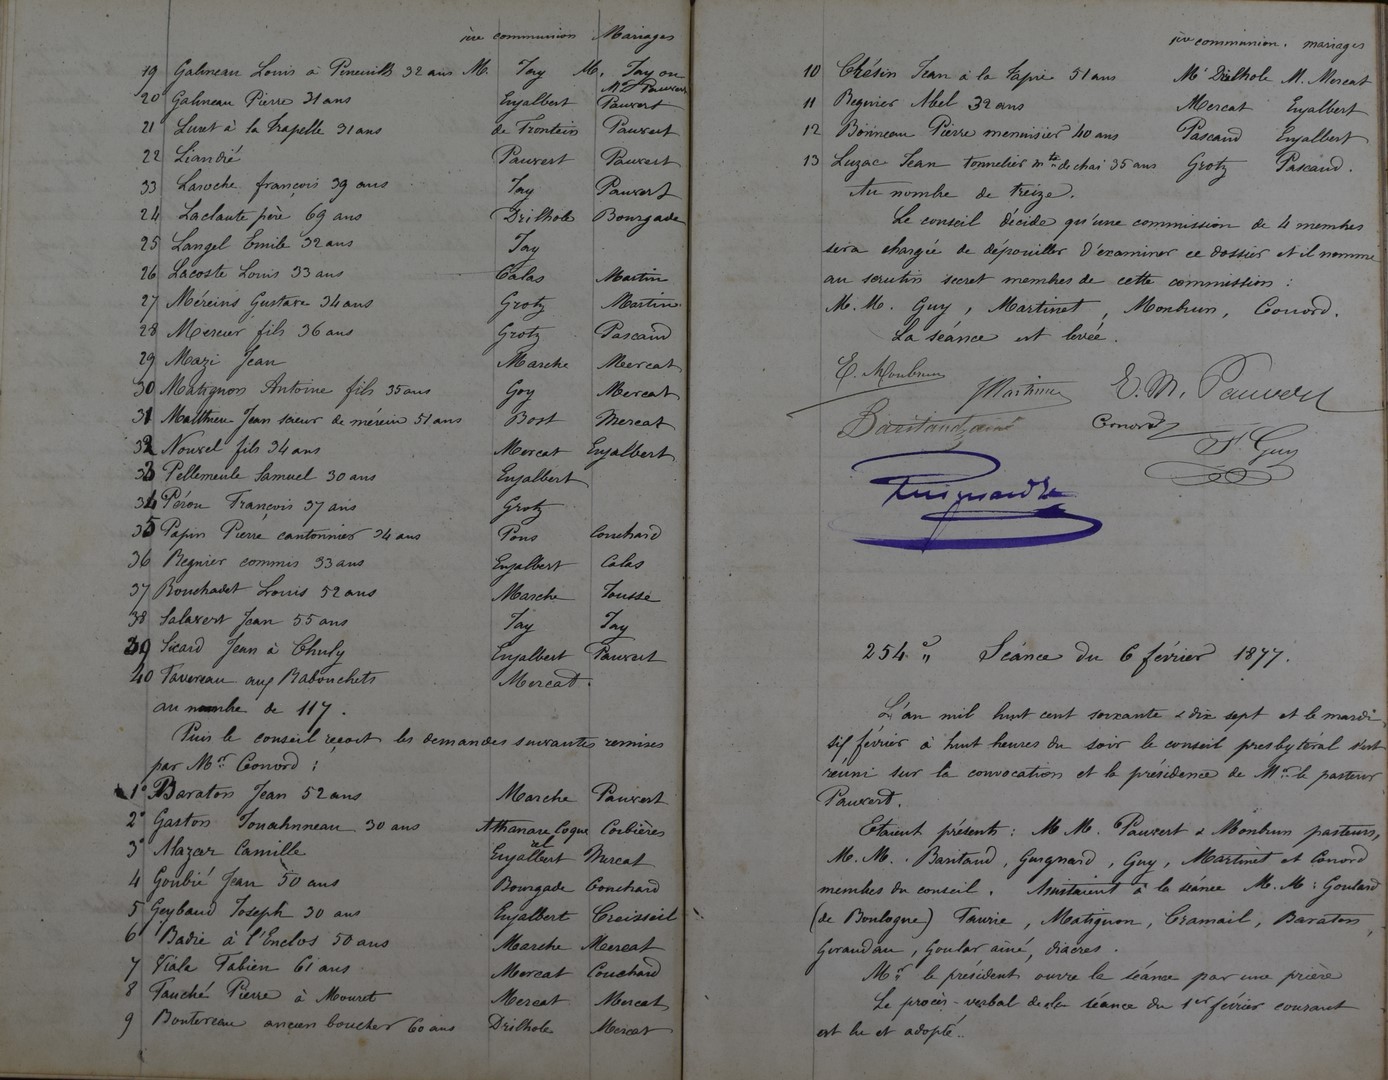 1ère communion Mariages
19 Galineau Louis à Pineuilh 32 ans M. Jay M. Jay ou
Mr Pauvert
20 Galineau Pierre 31 ans Enjalbert Pauvert
21 Luret à la Trapelle 31 ans de Frontein Pauvert
22 Liandié Pauvert Pauvert
33 Laroche françois 39 ans Jay Pauvert
24 Laclaute père 69 ans Drilhole Bourgade
25 Langel Emile 32 ans Jay
26 Lacoste Louis 33 ans Calas Martin
27 Méreins Gustave 34 ans Grotz Martin
28 Mercier fils 36 ans Grotz Pascaud
29 Mazi Jean Marche Mercat
30 Matignon Antoine fils 35 ans Goy Mercat
31 Matthieu Jean scieur de mérein 51 ans Bost Mercat
32 Nouvel fils 34 ans Mercat Enjalbert
33 Pellemeule Samuel 30 ans Enjalbert
34 Pérou François 37 ans Grotz
35 Papin Pierre cantonnier 34 ans Pons Couchard
36 Regnier commis 33 ans Enjalbert Calas
37 Bouchadet Louis 52 ans Marche Jousse
38 Salavert Jean 55 ans Jay Jay
39 Sicard Jean à Enjalbert Pauvert
40 Favereau aux Babouchets Mercat.
au nombre de 117.
Puis le conseil reçoit les demandes suivantes remises
par Mr Conord :
1° Baraton Jean 52 ans Marche Pauvert
2° Gaston 30 ans Athanase Coque Corbières
3° Mazer Camille Enjalbert Mercat
4 Goubié Jean 50 ans Bourgade Couchard
5 Geybaud Joseph 30 ans Enjalbert Croisseil
6° Badie à l'Enclos 50 ans Marche Mercat
7 Viala Fabien 61 ans Mercat Couchard
8 Fauché Pierre à Mouret Mercat Mercat
9 Boutereau ancien boucher 60 ans Drilhole Mercat
1ère communion. mariages
10 Chésin Jean à la Sapie 51 ans Mr Drilhole M. Mercat
11 Regnier Abel 32 ans Mercat Enjalbert
12 Bonneau Pierre menuisier 40 ans Pascaud Enjalbert
13 Luzac Jean tonnelier mtre de chai 35 ans Grotz Pascaud.
Au nombre de treize.
Le conseil décide qu'une commission de 4 membres
sera chargée de dépouiller d'examiner ce dossier et il nomme
au scrutin secret membres de cette commission :
M. M. Guy, Martinet, Monbrun, Conord.
La séance est levée.
E. Monbrun
JMartinet E. M. Pauvert
Baritaud ainé Conord
Guy
Guignard
254e " Séance du 6 février 1877.
L'an mil huit cent soixante & dix sept et le mardi
six février à huit heures du soir le conseil presbytéral s'est
réuni sur la convocation et la présidence de Mr le pasteur
Pauvert.
Etaient présents : M M. Pauvert & Monbrun pasteurs,
M. M. Baritaud, Guignard, Guy, Martinet et Conord
membes du conseil. Assistaient à la séance M. M: Goulard
(de Boulogne) Faurie, Matignon, Cramail, Baraton,
Giraudau, Goular ainé, diacres.
Mr. le président ouvre la séance par une prière
Le procès-verbal de la séance du 1er février courant
est lu et adopté.